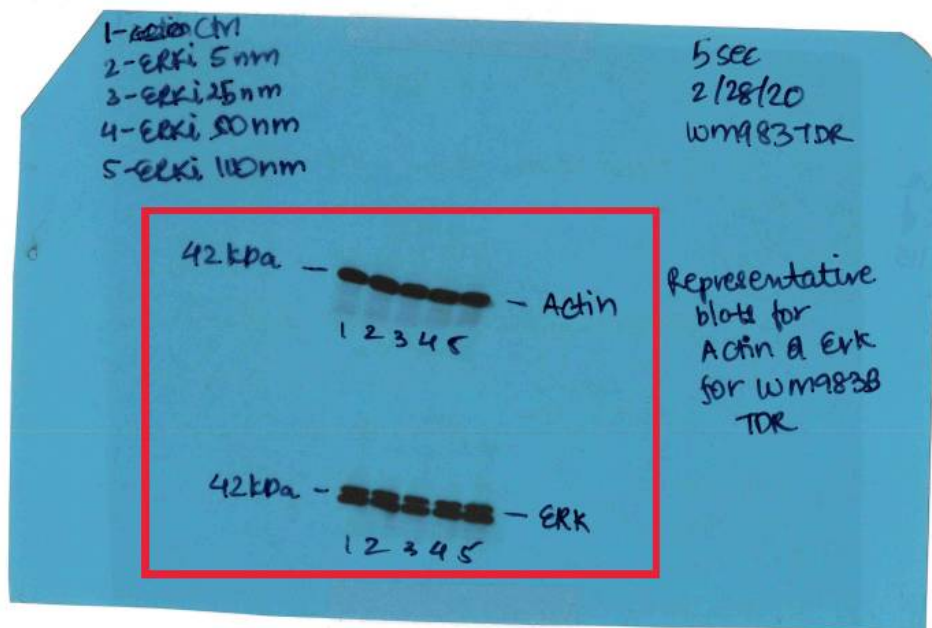 1- Ctrl
2-ERKi 5nm
3-ERKi 25nm
4-ERKi 50nm
5-ERKi 100nm
5 sec
2/28/20
WM983TDR
42kDa - - Actin
1 2 3 4 5
Representative
blots for
Actin & Erk
for WM983B
TDR
42kDa - - ERK
1 2 3 4 5